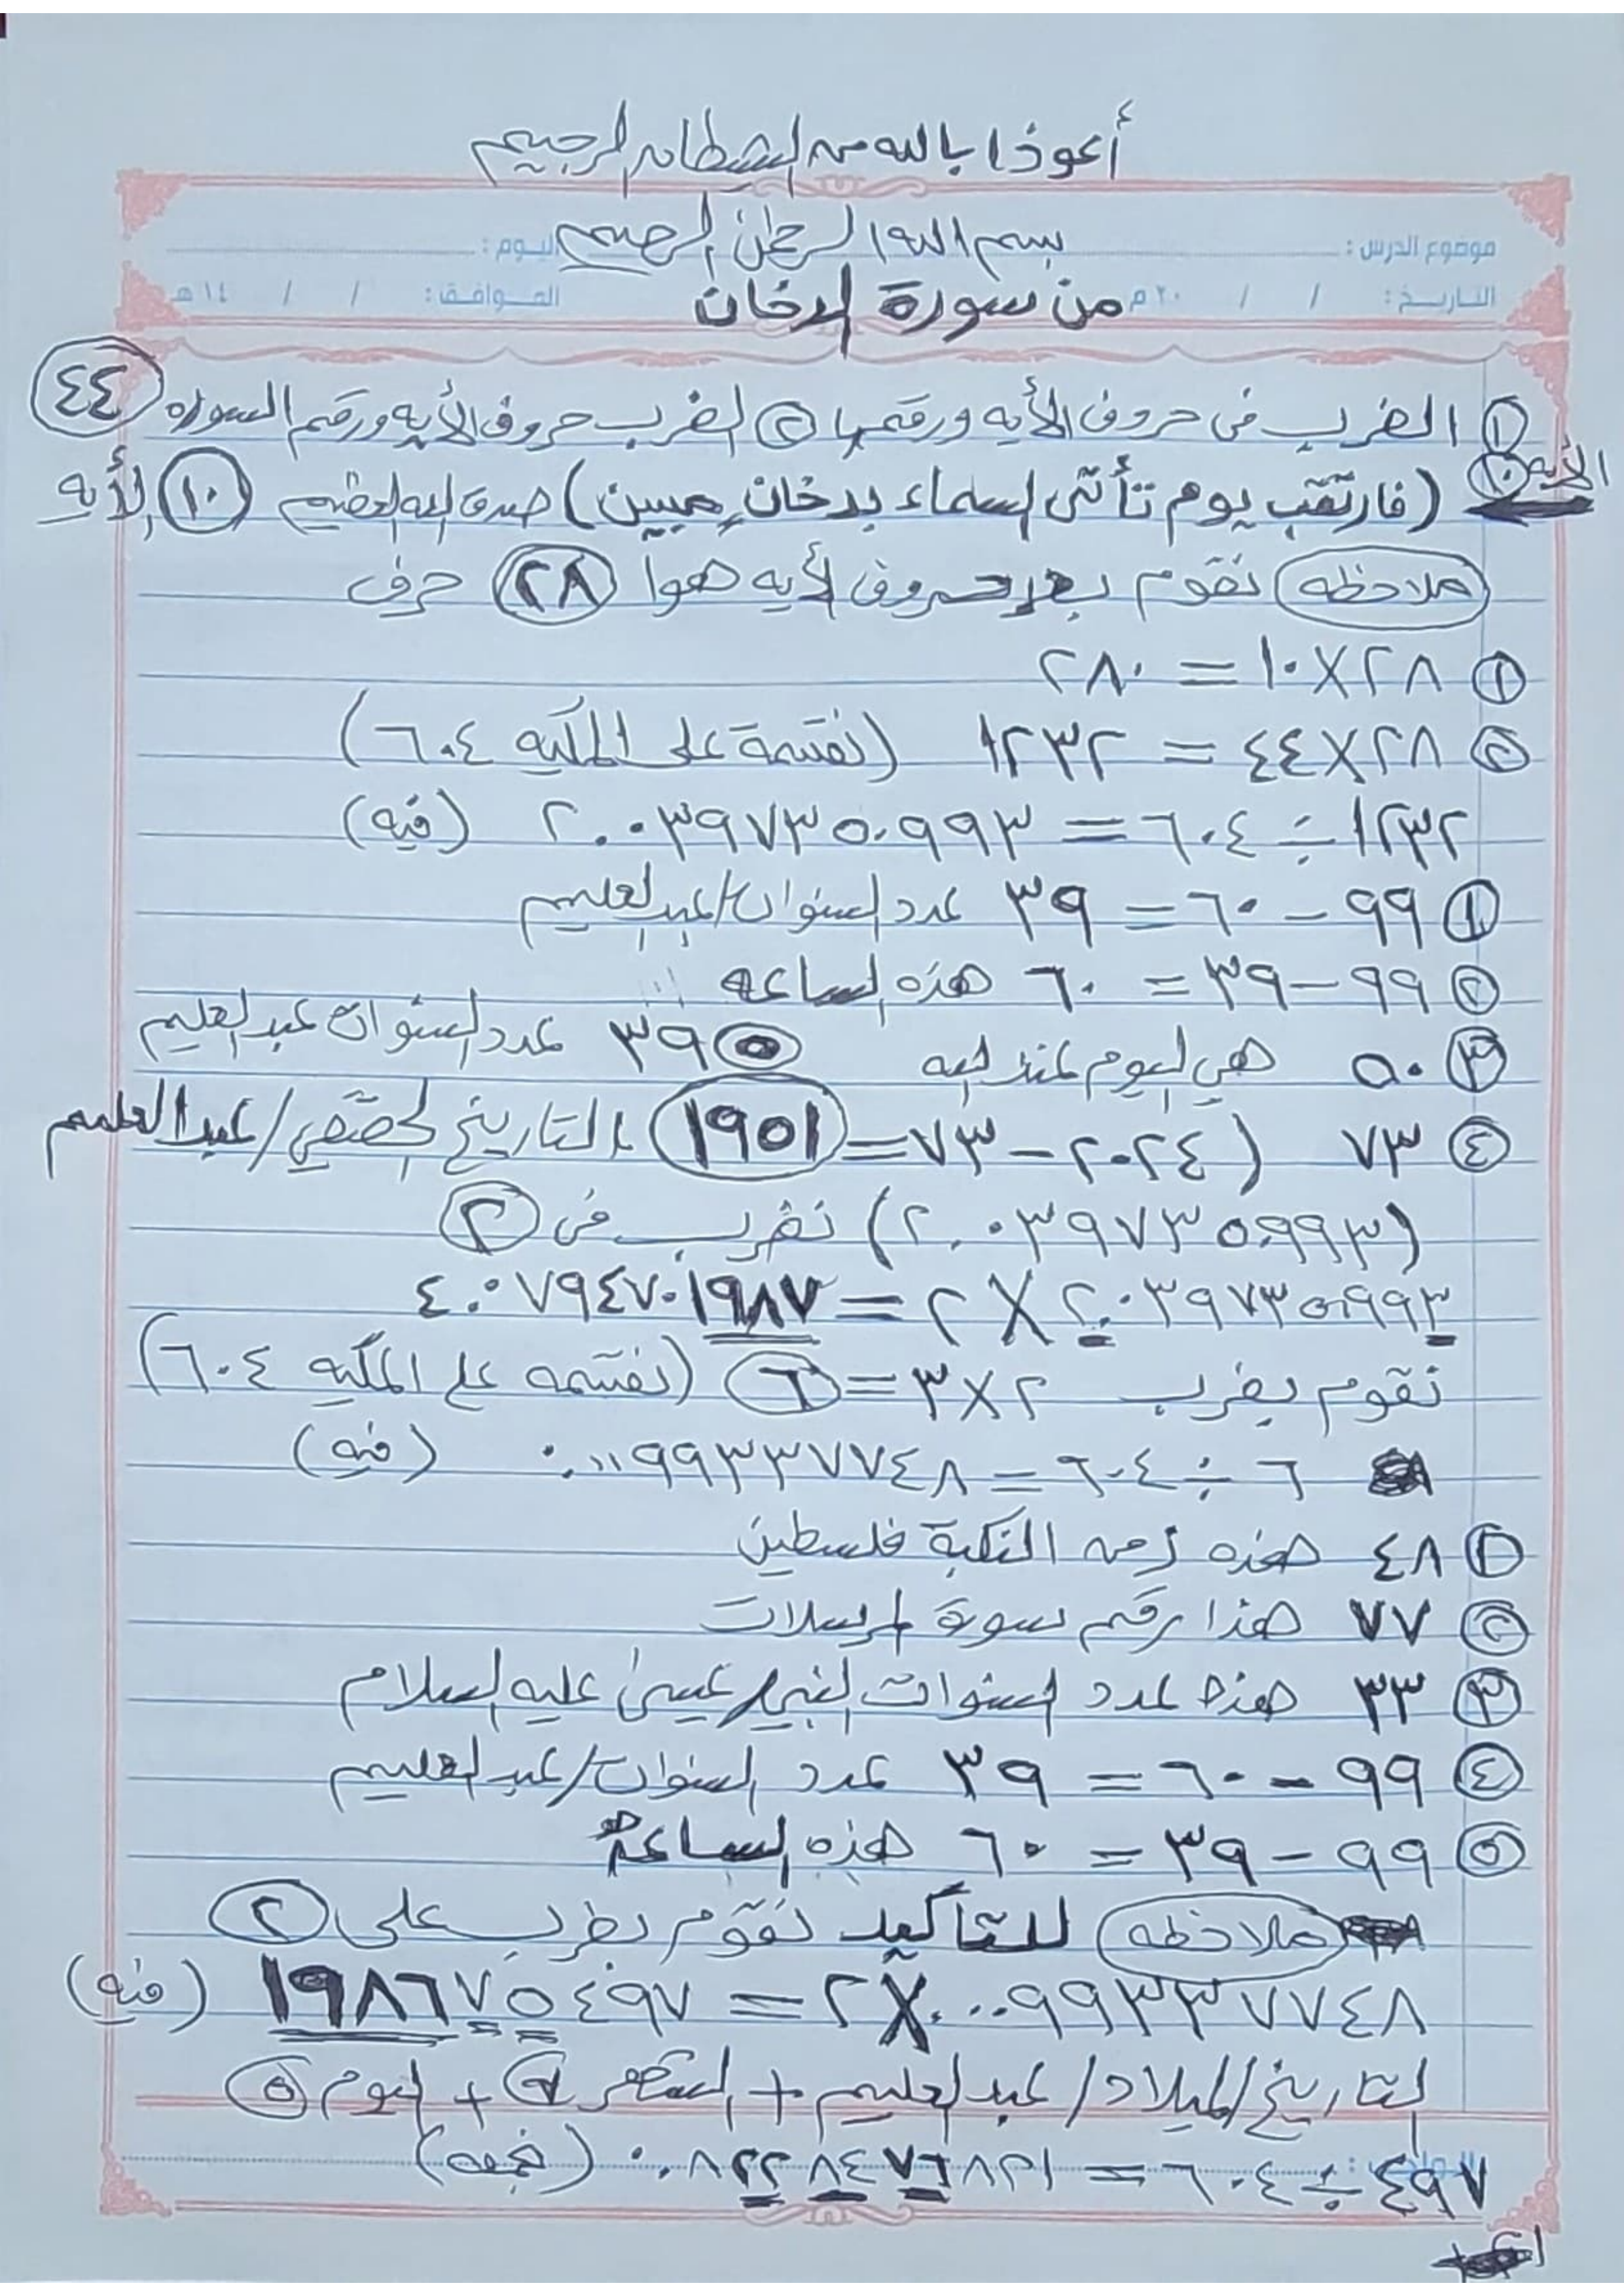 أعوذا بالله من الشيطان الرجيم
موضوع الدرس : بسم الله الرحمٰن الرحيم اليوم :
التاريخ : / / ٢٠ م من سورة الدخان الموافق : / / ١٤ هـ
① الضرب في حروف الأيه ورقمها ② الضرب حروف الأيه ورقم السوره ٤٤
الأيه ١٠ (فارتقب يوم تأتى السماء بدخانٍ مبين) صدق الله العضيم ١٠ الأيه
ملاحظه نقوم بعد حروف الأيه هوا ٢٨ حرف
① ٢٨ X ١٠ = ٢٨٠
② ٢٨ X ٤٤ = ١٢٣٢ (نقسمة على المكيه ٦٠٤)
١٢٣٢ ÷ ٦٠٤ = ٢.٠٣٩٧٣٥٠٩٩٣ (فيه)
① ٩٩ - ٦٠ = ٣٩ عدد السنوات/عبدالعليم
② ٩٩ - ٣٩ = ٦٠ هذه الساعه
③ ٥٠ هي اليوم عند الله ⑤ ٣٩ عدد السنوات عبدالعليم
④ ٧٣ (٢٠٢٤ - ٧٣ = ١٩٥١ التاريخ الحقيقي/عبدالعليم
(٢.٠٣٩٧٣٥٠٩٩٣) نضرب في ②
٢.٠٣٩٧٣٥٠٩٩٣ X ٢ = ٤.٠٧٩٤٧٠١٩٨٧
نقوم بضرب ٢ X ٣ = ٦ (نقسمه على المكيه ٦٠٤)
٦ ÷ ٦٠٤ = ٠.٠٠٩٩٣٣٧٧٤٨ (فيه)
① ٤٨ هذه زمن النكبة فلسطين
② ٧٧ هذا رقم سورة المرسلات
③ ٣٣ هذا عدد السنوات النبي/عيسىٰ عليه السلام
④ ٩٩ - ٦٠ = ٣٩ عدد السنوات/عبدالعليم
⑤ ٩٩ - ٣٩ = ٦٠ هذه الساعة
ملاحظه للتأكيد نقوم بضرب على ②
٠.٠٠٩٩٣٣٧٧٤٨ X ٢ = ١٩٨٦٧٥٤٩٧ (فيه)
التاريخ/الميلاد/عبدالعليم + الشهر ⑦ + اليوم ⑤
٤٩٧ ÷ ٦٠٤ = ٠.٨٢٢٨٤٧٦٨٢١